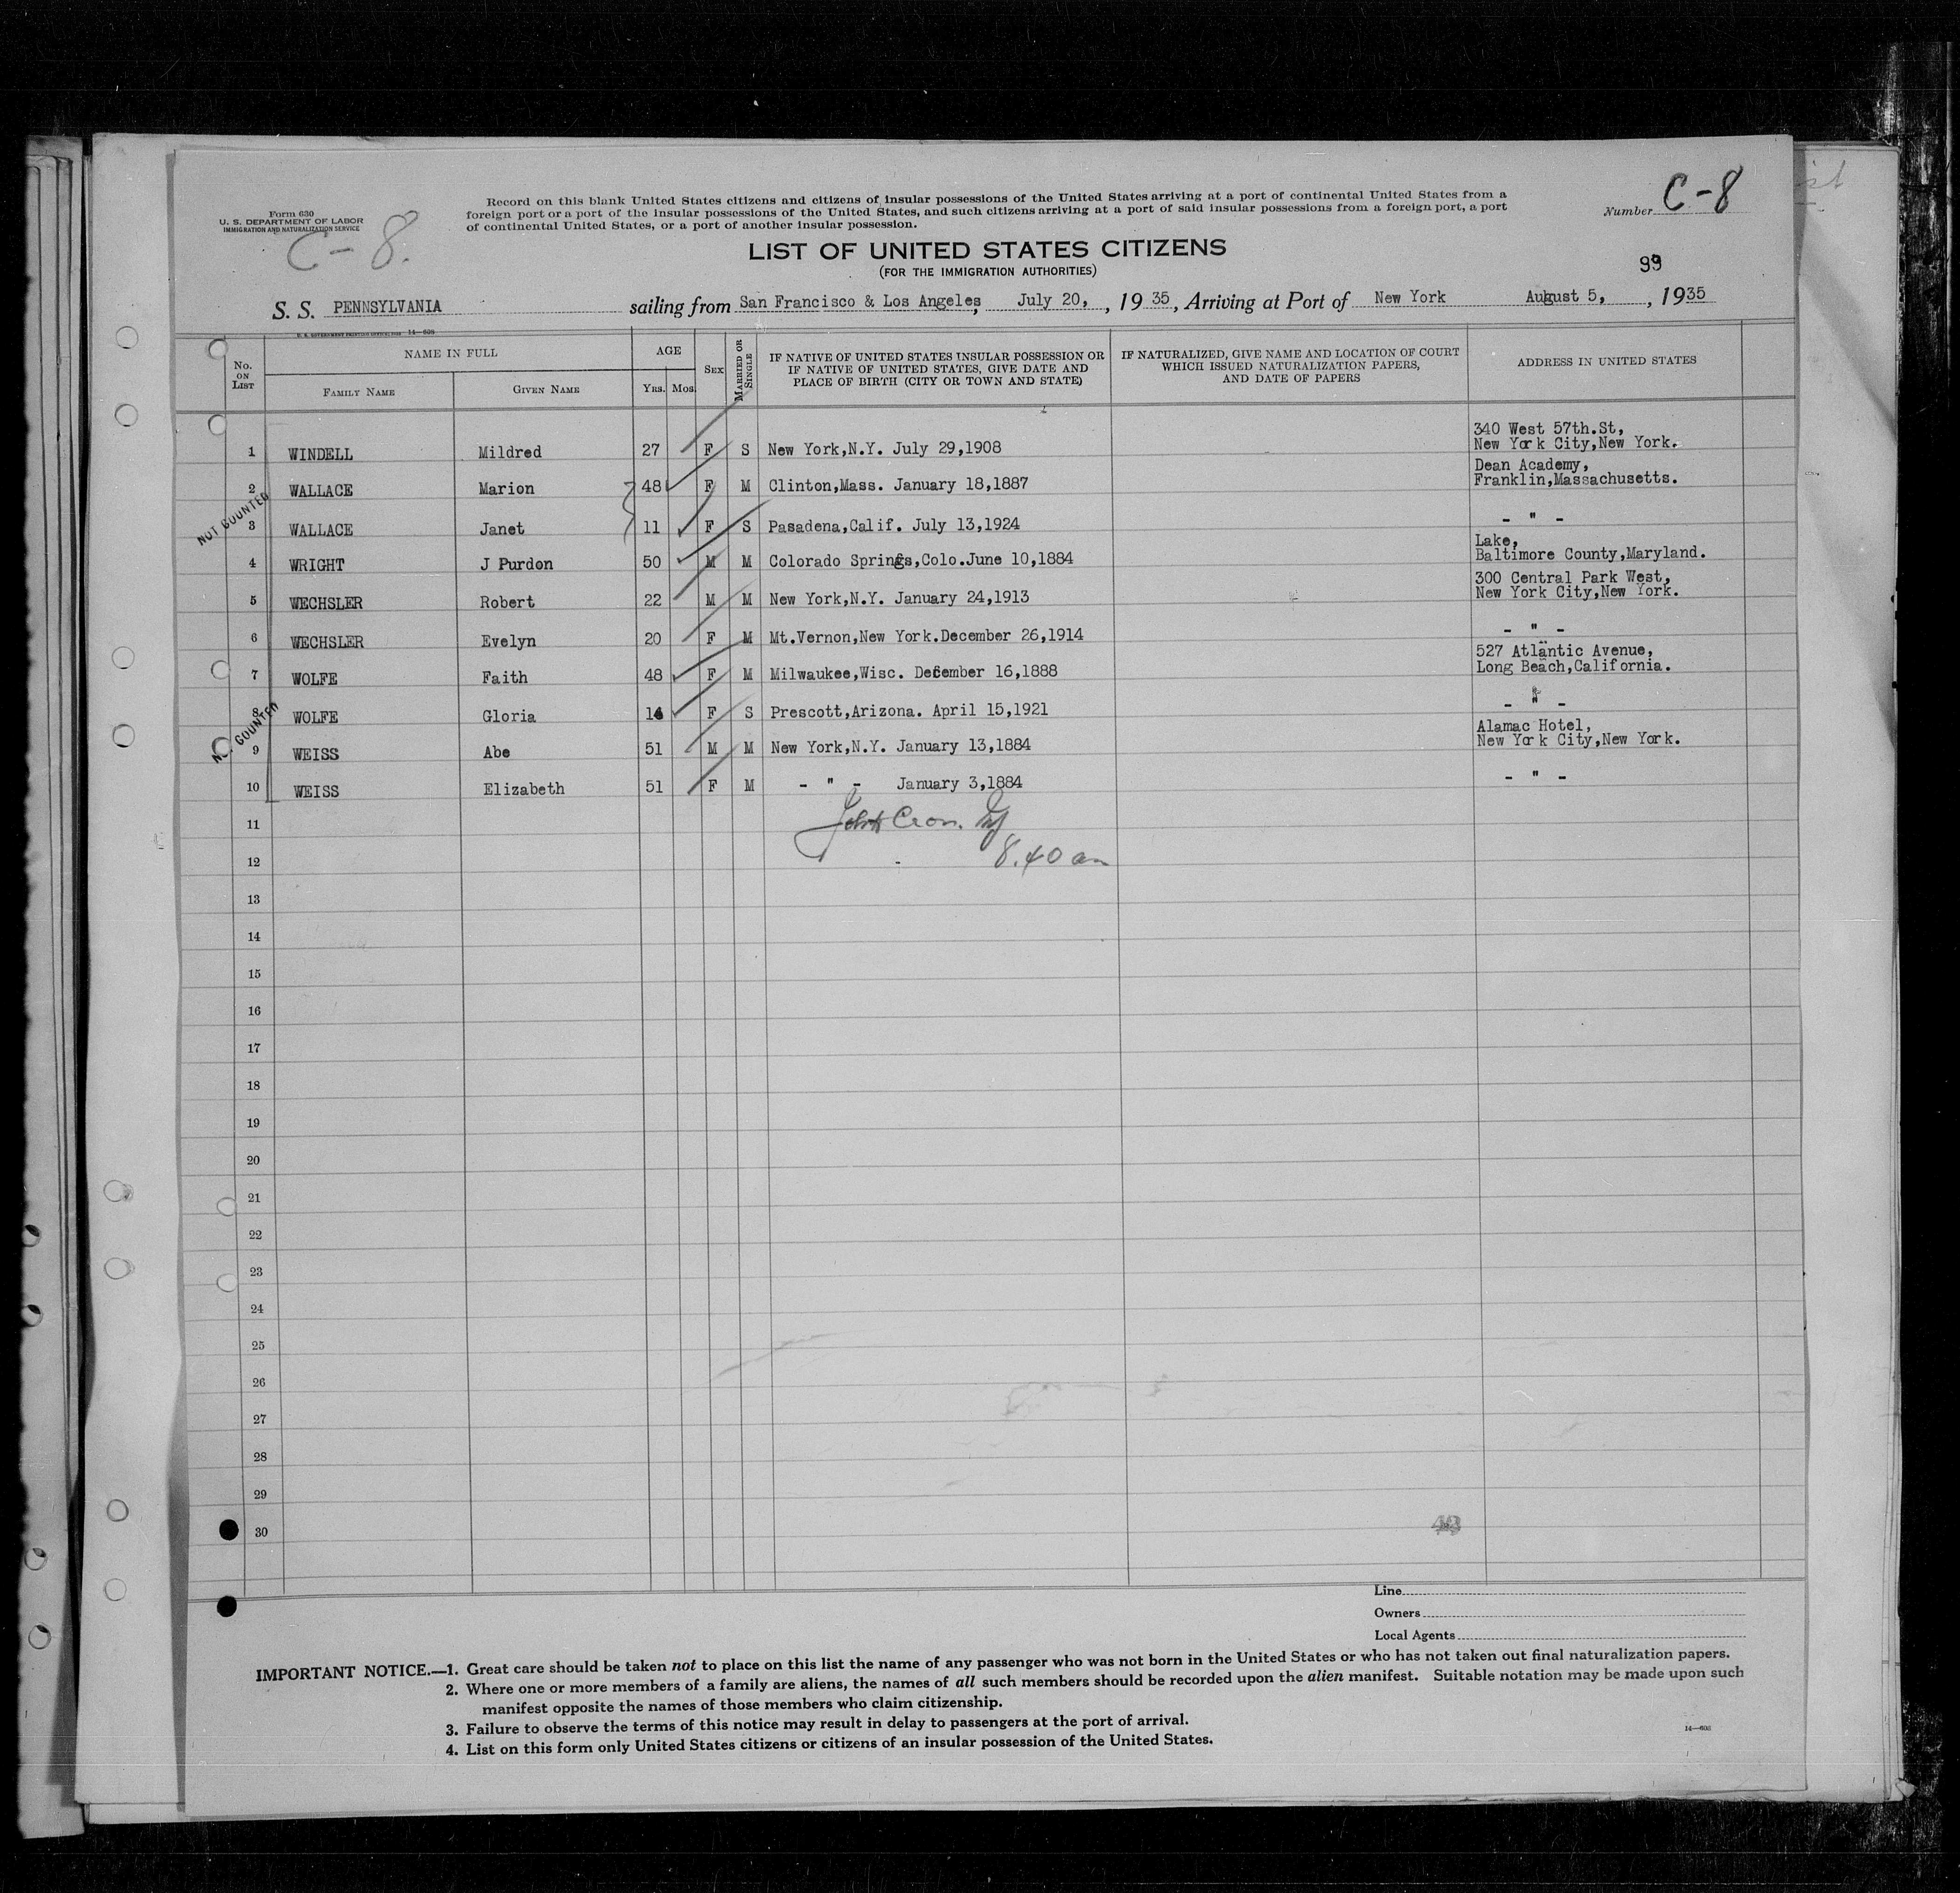 Form 630
U. S. DEPARTMENT OF LABOR
IMMIGRATION AND NATURALIZATION SERVICE
C-8.
Record on this blank United States citizens and citizens of insular possessions of the United States arriving at a port of continental United States from a
foreign port or a port of the insular possessions of the United States, and such citizens arriving at a port of said insular possessions from a foreign port, a port
of continental United States, or a port of another insular possession.
Number C-8
LIST OF UNITED STATES CITIZENS
(FOR THE IMMIGRATION AUTHORITIES)
99
S. S. PENNSYLVANIA sailing from San Francisco & Los Angeles, July 20, , 1935, Arriving at Port of New York August 5, , 1935
U. S. GOVERNMENT PRINTING OFFICE 14—608
No. ON LIST NAME IN FULL FAMILY NAME GIVEN NAME AGE Yrs. Mos. SEX MARRIED OR SINGLE IF NATIVE OF UNITED STATES INSULAR POSSESSION OR IF NATIVE OF UNITED STATES, GIVE DATE AND PLACE OF BIRTH (CITY OR TOWN AND STATE) IF NATURALIZED, GIVE NAME AND LOCATION OF COURT WHICH ISSUED NATURALIZATION PAPERS, AND DATE OF PAPERS ADDRESS IN UNITED STATES
1 WINDELL Mildred 27 F S New York,N.Y. July 29,1908 340 West 57th.St, New York City,New York.
2 WALLACE Marion 48 F M Clinton,Mass. January 18,1887 Dean Academy, Franklin,Massachusetts.
NOT COUNTED
3 WALLACE Janet 11 F S Pasadena,Calif. July 13,1924 - " -
4 WRIGHT J Purdon 50 M M Colorado Springs,Colo.June 10,1884 Lake, Baltimore County,Maryland.
5 WECHSLER Robert 22 M M New York,N.Y. January 24,1913 300 Central Park West, New York City,New York.
6 WECHSLER Evelyn 20 F M Mt.Vernon,New York.December 26,1914 - " -
7 WOLFE Faith 48 F M Milwaukee,Wisc. December 16,1888 527 Atlantic Avenue, Long Beach,California.
8 WOLFE Gloria 14 F S Prescott,Arizona. April 15,1921 - " -
NOT COUNTED
9 WEISS Abe 51 M M New York,N.Y. January 13,1884 Alamac Hotel, New York City,New York.
10 WEISS Elizabeth 51 F M - " - January 3,1884 - " -
11
12 8.40 am
13
14
15
16
17
18
19
20
21
22
23
24
25
26
27
28
29
30
Line
Owners
Local Agents
IMPORTANT NOTICE.—1. Great care should be taken not to place on this list the name of any passenger who was not born in the United States or who has not taken out final naturalization papers.
2. Where one or more members of a family are aliens, the names of all such members should be recorded upon the alien manifest. Suitable notation may be made upon such
manifest opposite the names of those members who claim citizenship.
3. Failure to observe the terms of this notice may result in delay to passengers at the port of arrival.
4. List on this form only United States citizens or citizens of an insular possession of the United States.
14—608